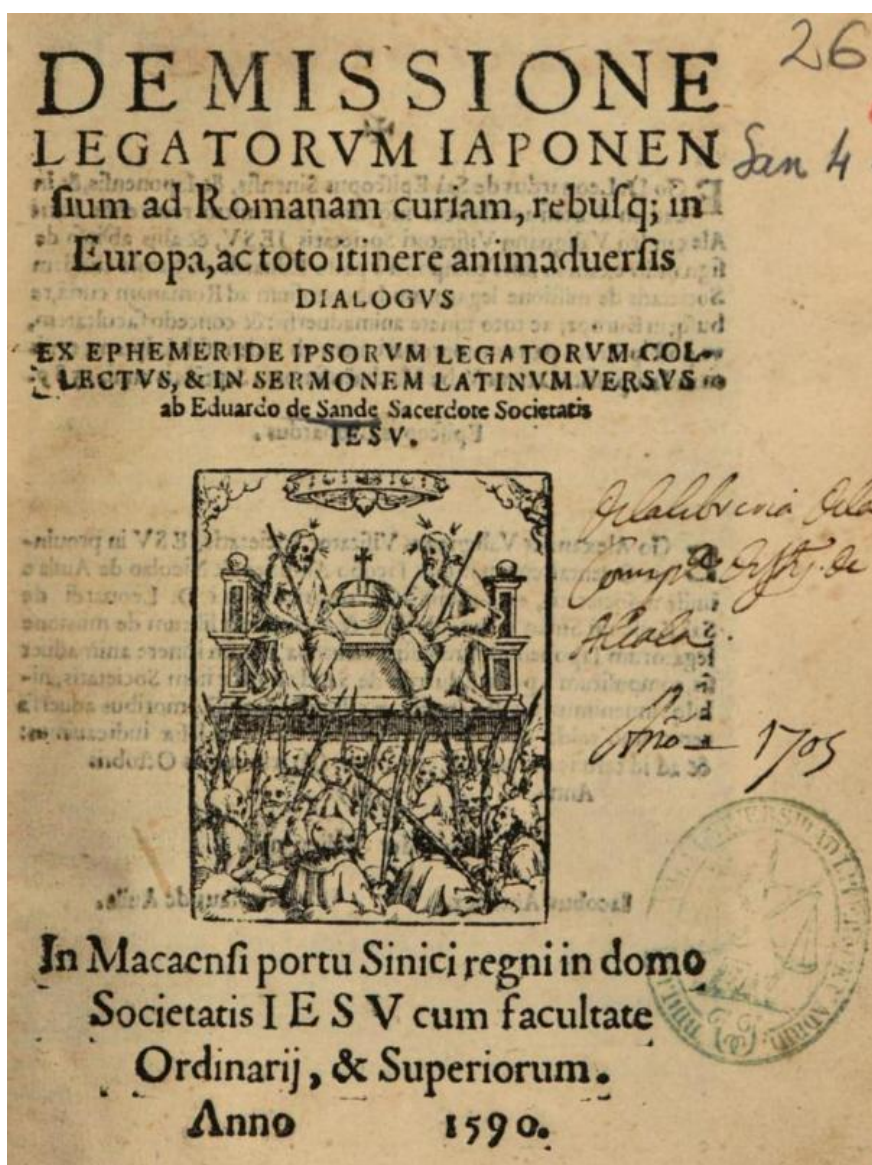 26
DE MISSIONE
LEGATORVM IAPONEN
San 4
ſium ad Romanam curiam, rebuſq; in
Europa, ac toto itinere animaduerſis
DIALOGVS
EX EPHEMERIDE IPSORVM LEGATORVM COL-
LECTVS, & IN SERMONEM LATINVM VERSVS
ab Eduardo de Sande Sacerdote Societatis
IESV.
de la libreria de la
Comp.ª de Jhs. de
Alcala.
Año 1705
In Macaenſi portu Sinici regni in domo
Societatis IESV cum facultate
Ordinarij, & Superiorum.
Anno 1590.